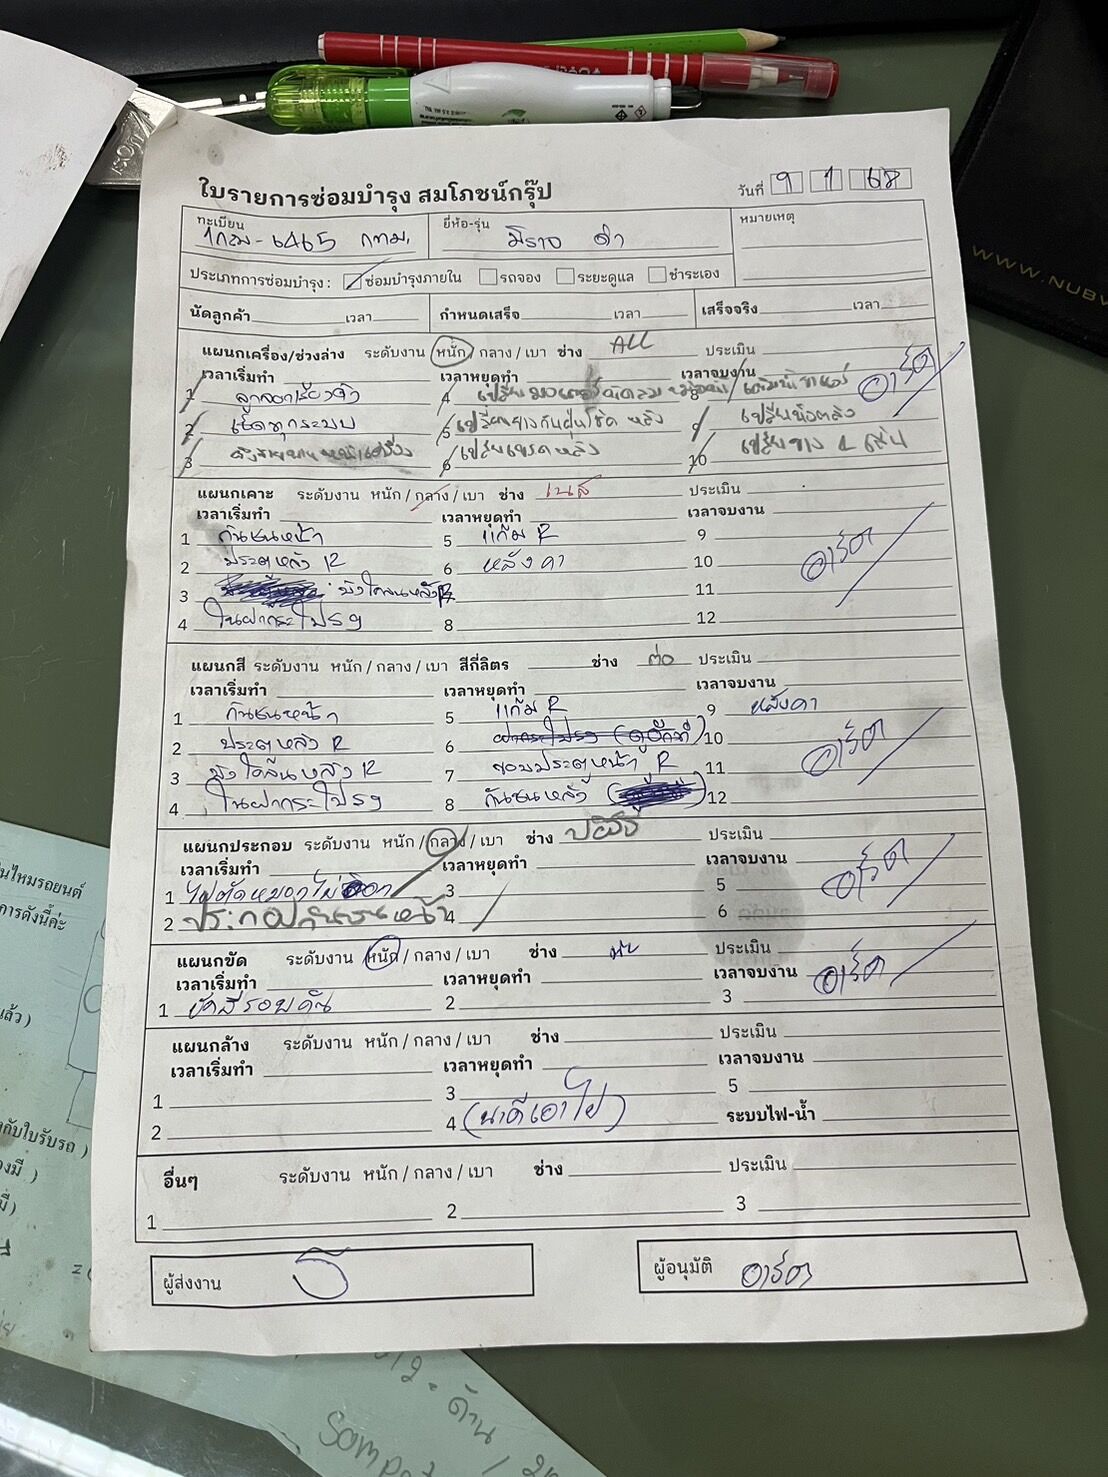 ใบรายการซ่อมบำรุง สมโภชน์กรุ๊ป
วันที่ 9 1 68
ทะเบียน 1กฒ-6465 กทม.
ยี่ห้อ-รุ่น มิราจ ดำ
หมายเหตุ
ประเภทการซ่อมบำรุง : ซ่อมบำรุงภายใน รถจอง ระยะดูแล ชำระเอง
นัดลูกค้า เวลา กำหนดเสร็จ เวลา เสร็จจริง เวลา
แผนกเครื่อง/ช่วงล่าง ระดับงาน หนัก / กลาง / เบา ช่าง ALL ประเมิน
เวลาเริ่มทำ เวลาหยุดทำ เวลาจบงาน
1 4 8 อาร์ต
2 เช็คทุกระบบ 5 เปลี่ยนยางกันฝุ่นโช๊ค หลัง 9 เปลี่ยน
3 6 เปลี่ยนเบรคหลัง 10 เปลี่ยนยาง 4 เส้น
แผนกเคาะ ระดับงาน หนัก / กลาง / เบา ช่าง เนส ประเมิน
เวลาเริ่มทำ เวลาหยุดทำ เวลาจบงาน
1 กันชนหน้า 5 แก้ม R 9
2 ประตูหลัง R 6 หลังคา 10 อาร์ต
3 บังโคลนหลัง R 11
4 ในฝากระโปรง 8 12
แผนกสี ระดับงาน หนัก / กลาง / เบา สีกี่ลิตร ช่าง ต่อ ประเมิน
เวลาเริ่มทำ เวลาหยุดทำ เวลาจบงาน
1 กันชนหน้า 5 แก้ม R 9 หลังคา
2 ประตูหลัง R 6 ฝากระโปรง 10 อาร์ต
3 บังโคลนหลัง R 7 ขอบประตูหน้า R 11
4 ในฝากระโปรง 8 กันชนหลัง 12
แผนกประกอบ ระดับงาน หนัก / กลาง / เบา ช่าง ประเมิน
เวลาเริ่มทำ เวลาหยุดทำ เวลาจบงาน
1 ไฟตัดหมอกไม่ออก 3 5 อาร์ต
2 ประกอบกันชนหน้า 4 6
แผนกขัด ระดับงาน หนัก / กลาง / เบา ช่าง ประเมิน
เวลาเริ่มทำ เวลาหยุดทำ เวลาจบงาน อาร์ต
1 ขัดสีรอบคัน 2 3
แผนกล้าง ระดับงาน หนัก / กลาง / เบา ช่าง ประเมิน
เวลาเริ่มทำ เวลาหยุดทำ เวลาจบงาน
1 3 5
2 4 ระบบไฟ-น้ำ
อื่นๆ ระดับงาน หนัก / กลาง / เบา ช่าง ประเมิน
1 2 3
ผู้ส่งงาน
ผู้อนุมัติ อาร์ต
WWW.NUBW